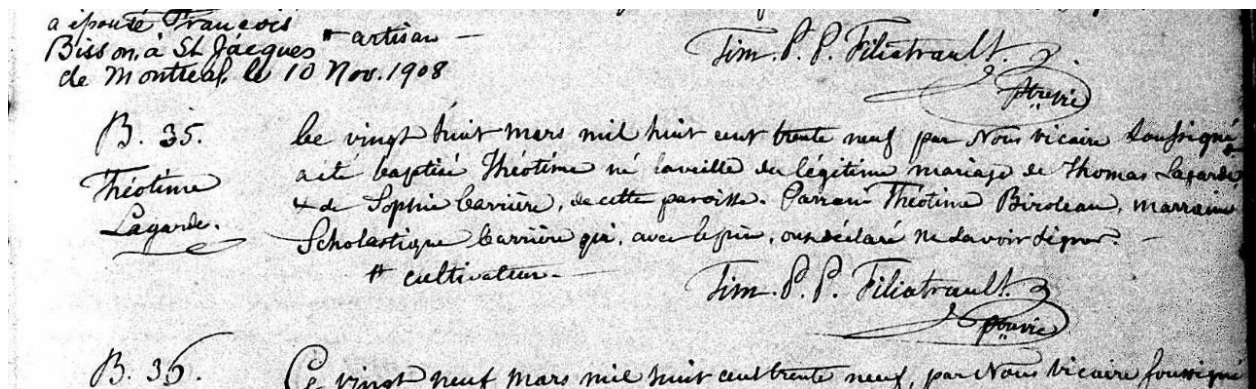 a épousé François
Bisson, à St Jacques # artisan —
de Montreal, le 10 Nov. 1908
Tim. P. P. Filiatrault.
ptrevic
B. 35.
Théotime
Lagarde.
Le vingt huit mars mil huit cent trente neuf par Nous vicaire soussigné
a été baptisé Théotime né la veille du légitime mariage de Thomas Lagarde #
& de Sophie Carrière, de cette paroisse. Parrain Théotime Biroleau, marraine
Scholastique Carrière qui, avec le père, ont déclaré ne savoir signer. —
# cultivateur. —
Tim. P. P. Filiatrault.
ptrevic
B. 36.
Ce vingt neuf mars mil huit cent trente neuf, par Nous vicaire soussigné